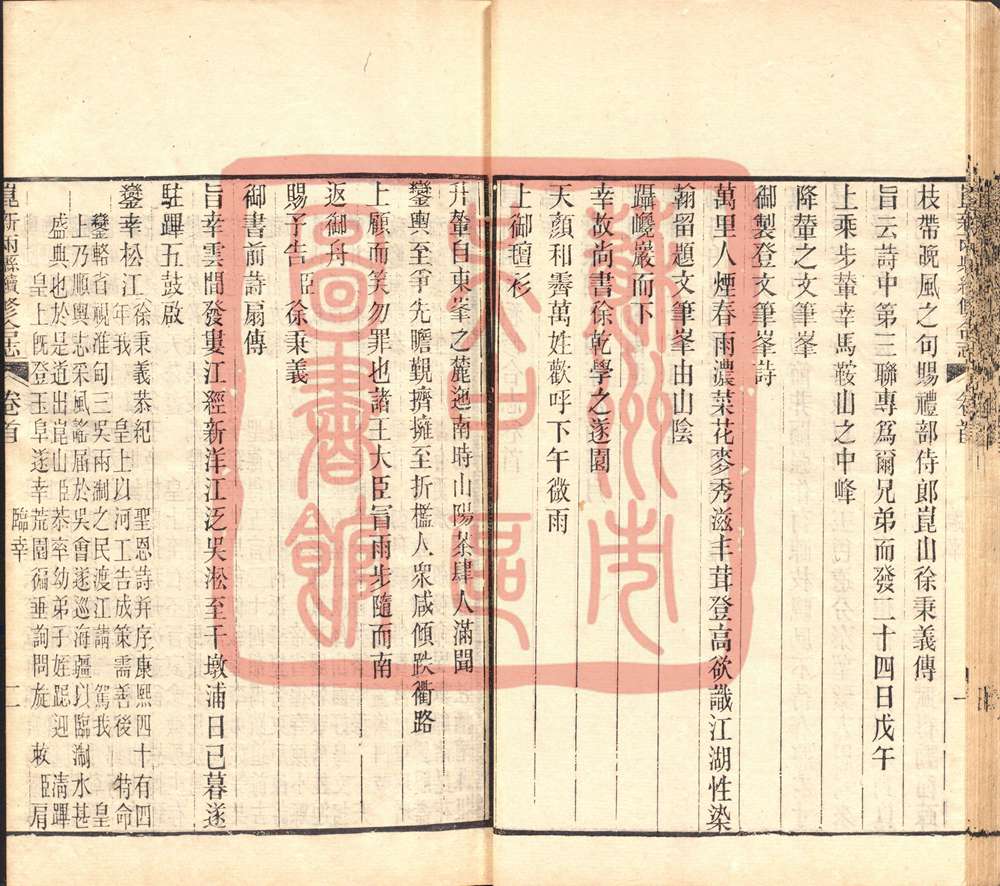 枝帶晚風之句賜禮部侍郎崑山徐秉義傳
旨云詩中第三聯專爲爾兄弟而發二十四日戊午
上乘步輦幸馬鞍山之中峰
降輦之文筆峯
御製登文筆峯詩
萬里人煙春雨濃菜花麥秀滋丰茸登高欲識江湖性染
翰留題文筆峯由山陰
躡巉巖而下
幸故尚書徐乾學之遂園
天顏和霽萬姓歡呼下午微雨
上御氊衫
升輦自東峯之麓迤南時山陽茶肆人滿聞
鑾輿至爭先瞻覲擠擁至折檻人衆咸傾跌衢路
上顧而笑勿罪也諸王大臣冒雨步隨而南
返御舟
賜予告臣徐秉義
御書前詩扇傳
旨幸雲間發婁江經新洋江泛吳淞至千墩浦日已暮遂
駐蹕五鼓啟
鑾幸松江徐秉義恭紀 聖恩詩并序康熙四十有四
年我 皇上以河工告成策需善後 特命
鑾輅省視淮甸三吳兩淛之民渡江請 駕我 皇
上乃順輿志采風謠屆於吳會遂巡海疆以臨淛水甚
盛典也於是道出崑山臣恭率幼弟子姪跽迎 清蹕
皇上旣登玉阜遂幸荒園徧垂詢問旋 敕臣肩
臨幸
崑新兩縣續修合志 卷首 二
蘇州市吳中區圖書館